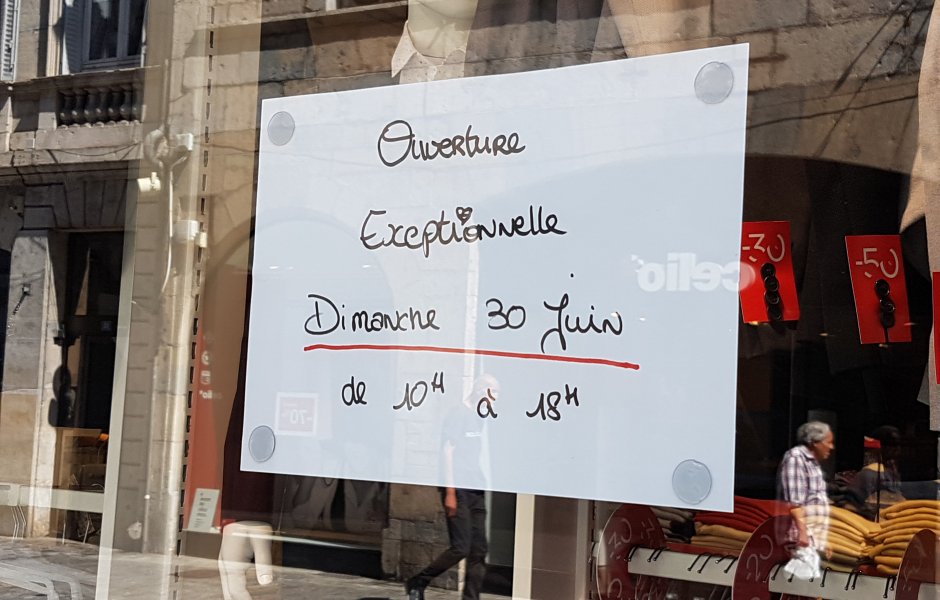 Ouverture
Exceptionnelle
Dimanche 30 Juin
de 10H à 18H
celio*
-30
-50
-70%